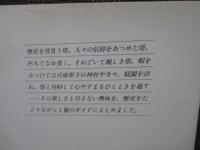 歴史を背負う塔、人々の信仰をあつめた塔。
朽ちてなお貴く、それでいて親しき塔。暇を
みつけては兵庫県下の神社や寺々、庭園を訪
れ、塔と対峙して心やすまるひとときを過す
──その楽しさと尽きない興味を、歴史をた
どりながら1冊のガイドにまとめました。